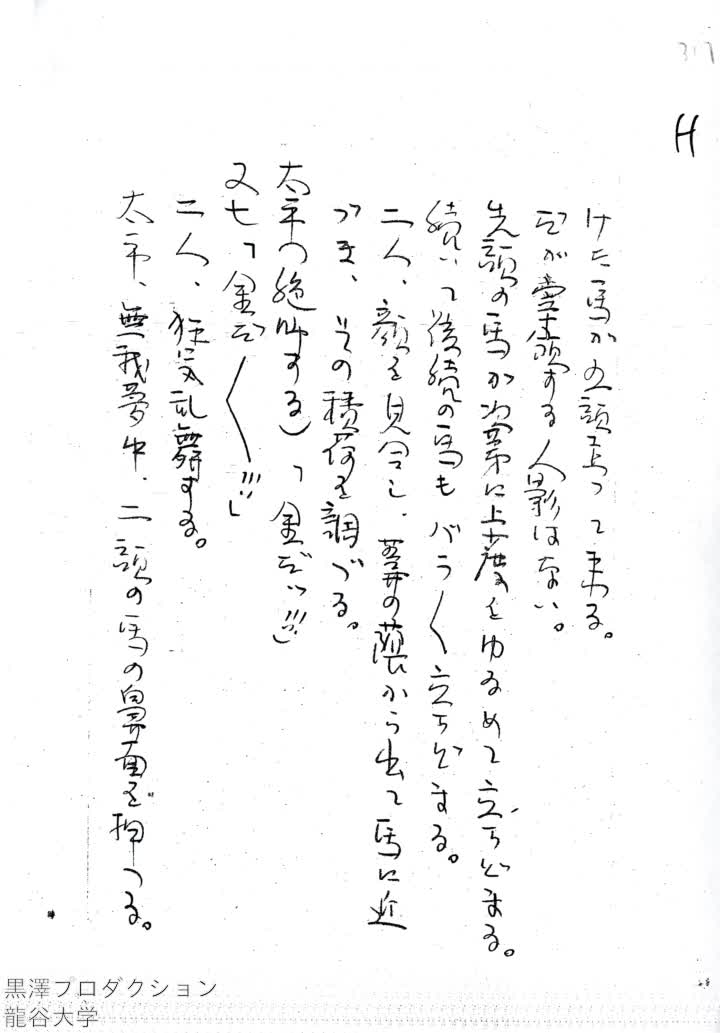 317
H
けた馬が五頭走って来る。
だが実際する人影はない。
先頭の馬が次第に速度をゆるめて立ちどまる。
続いて後続の馬もバラ〱立ちどまる。
二人、顔を見合し、草の蔭から出て馬に近
づき、その積荷を調べる。
太平の絶叫する)「金だッ!!!」
又七「金だ〱!!!」
二人、狂気乱舞する。
太平、無我夢中、二頭の馬の鼻面を押へる。
黒澤プロダクション
龍谷大学